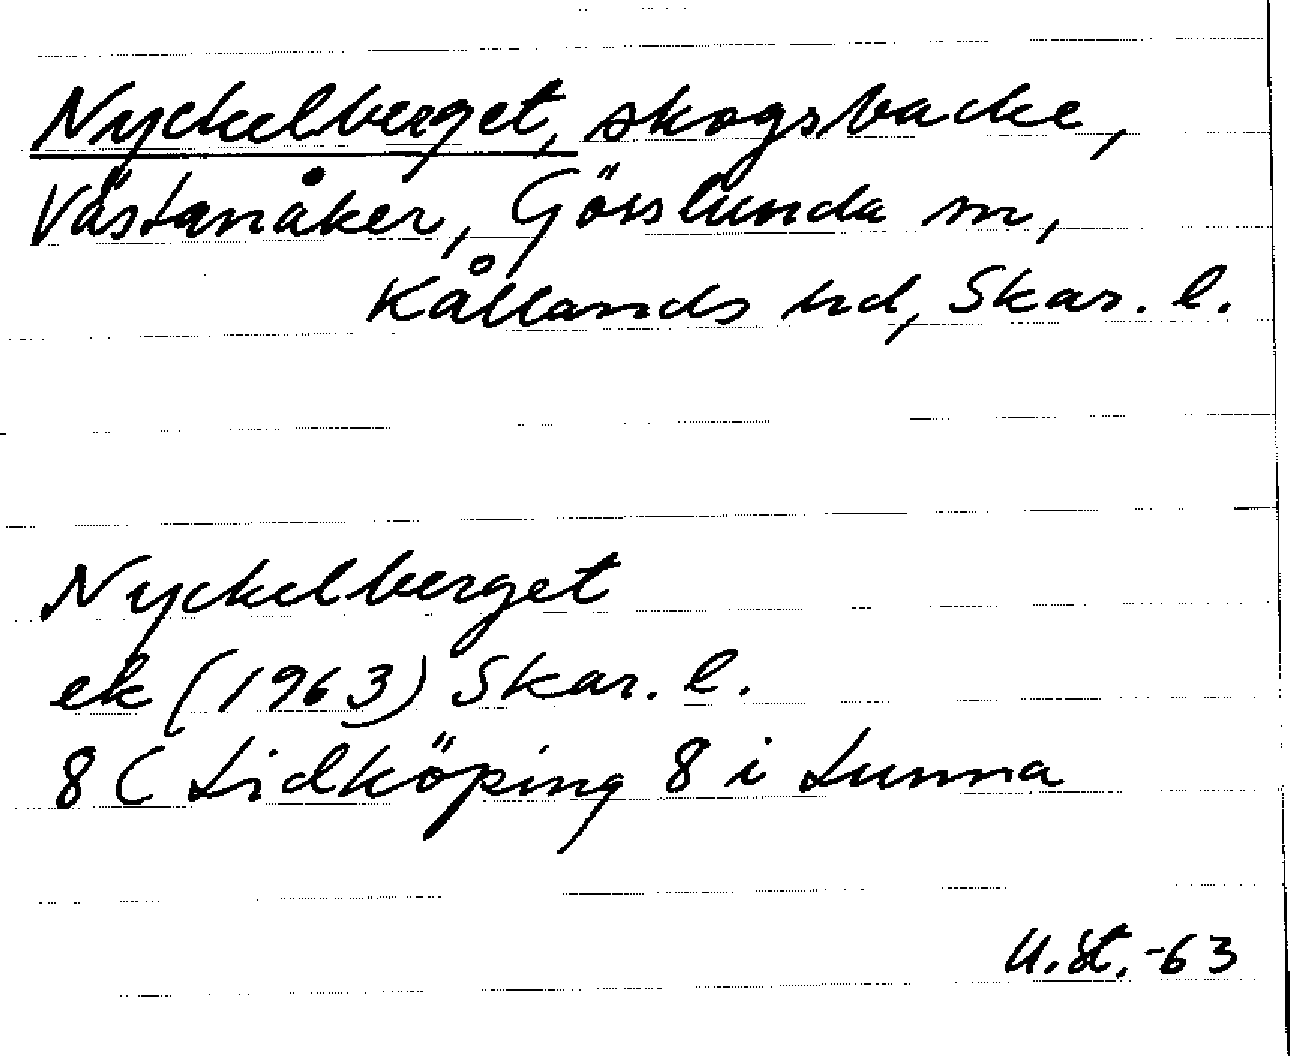 Nyckelberget, skogsbacke,
Västanåker, Gösslunda sn,
Kållands hd, Skar. l.
Nyckelberget
ek (1963) Skar. l.
8C Lidköping 8 i Lunna
U.St.-63